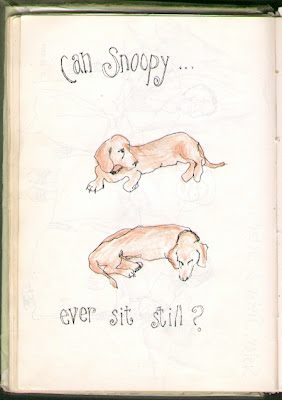 Can Snoopy ...
ever sit still?